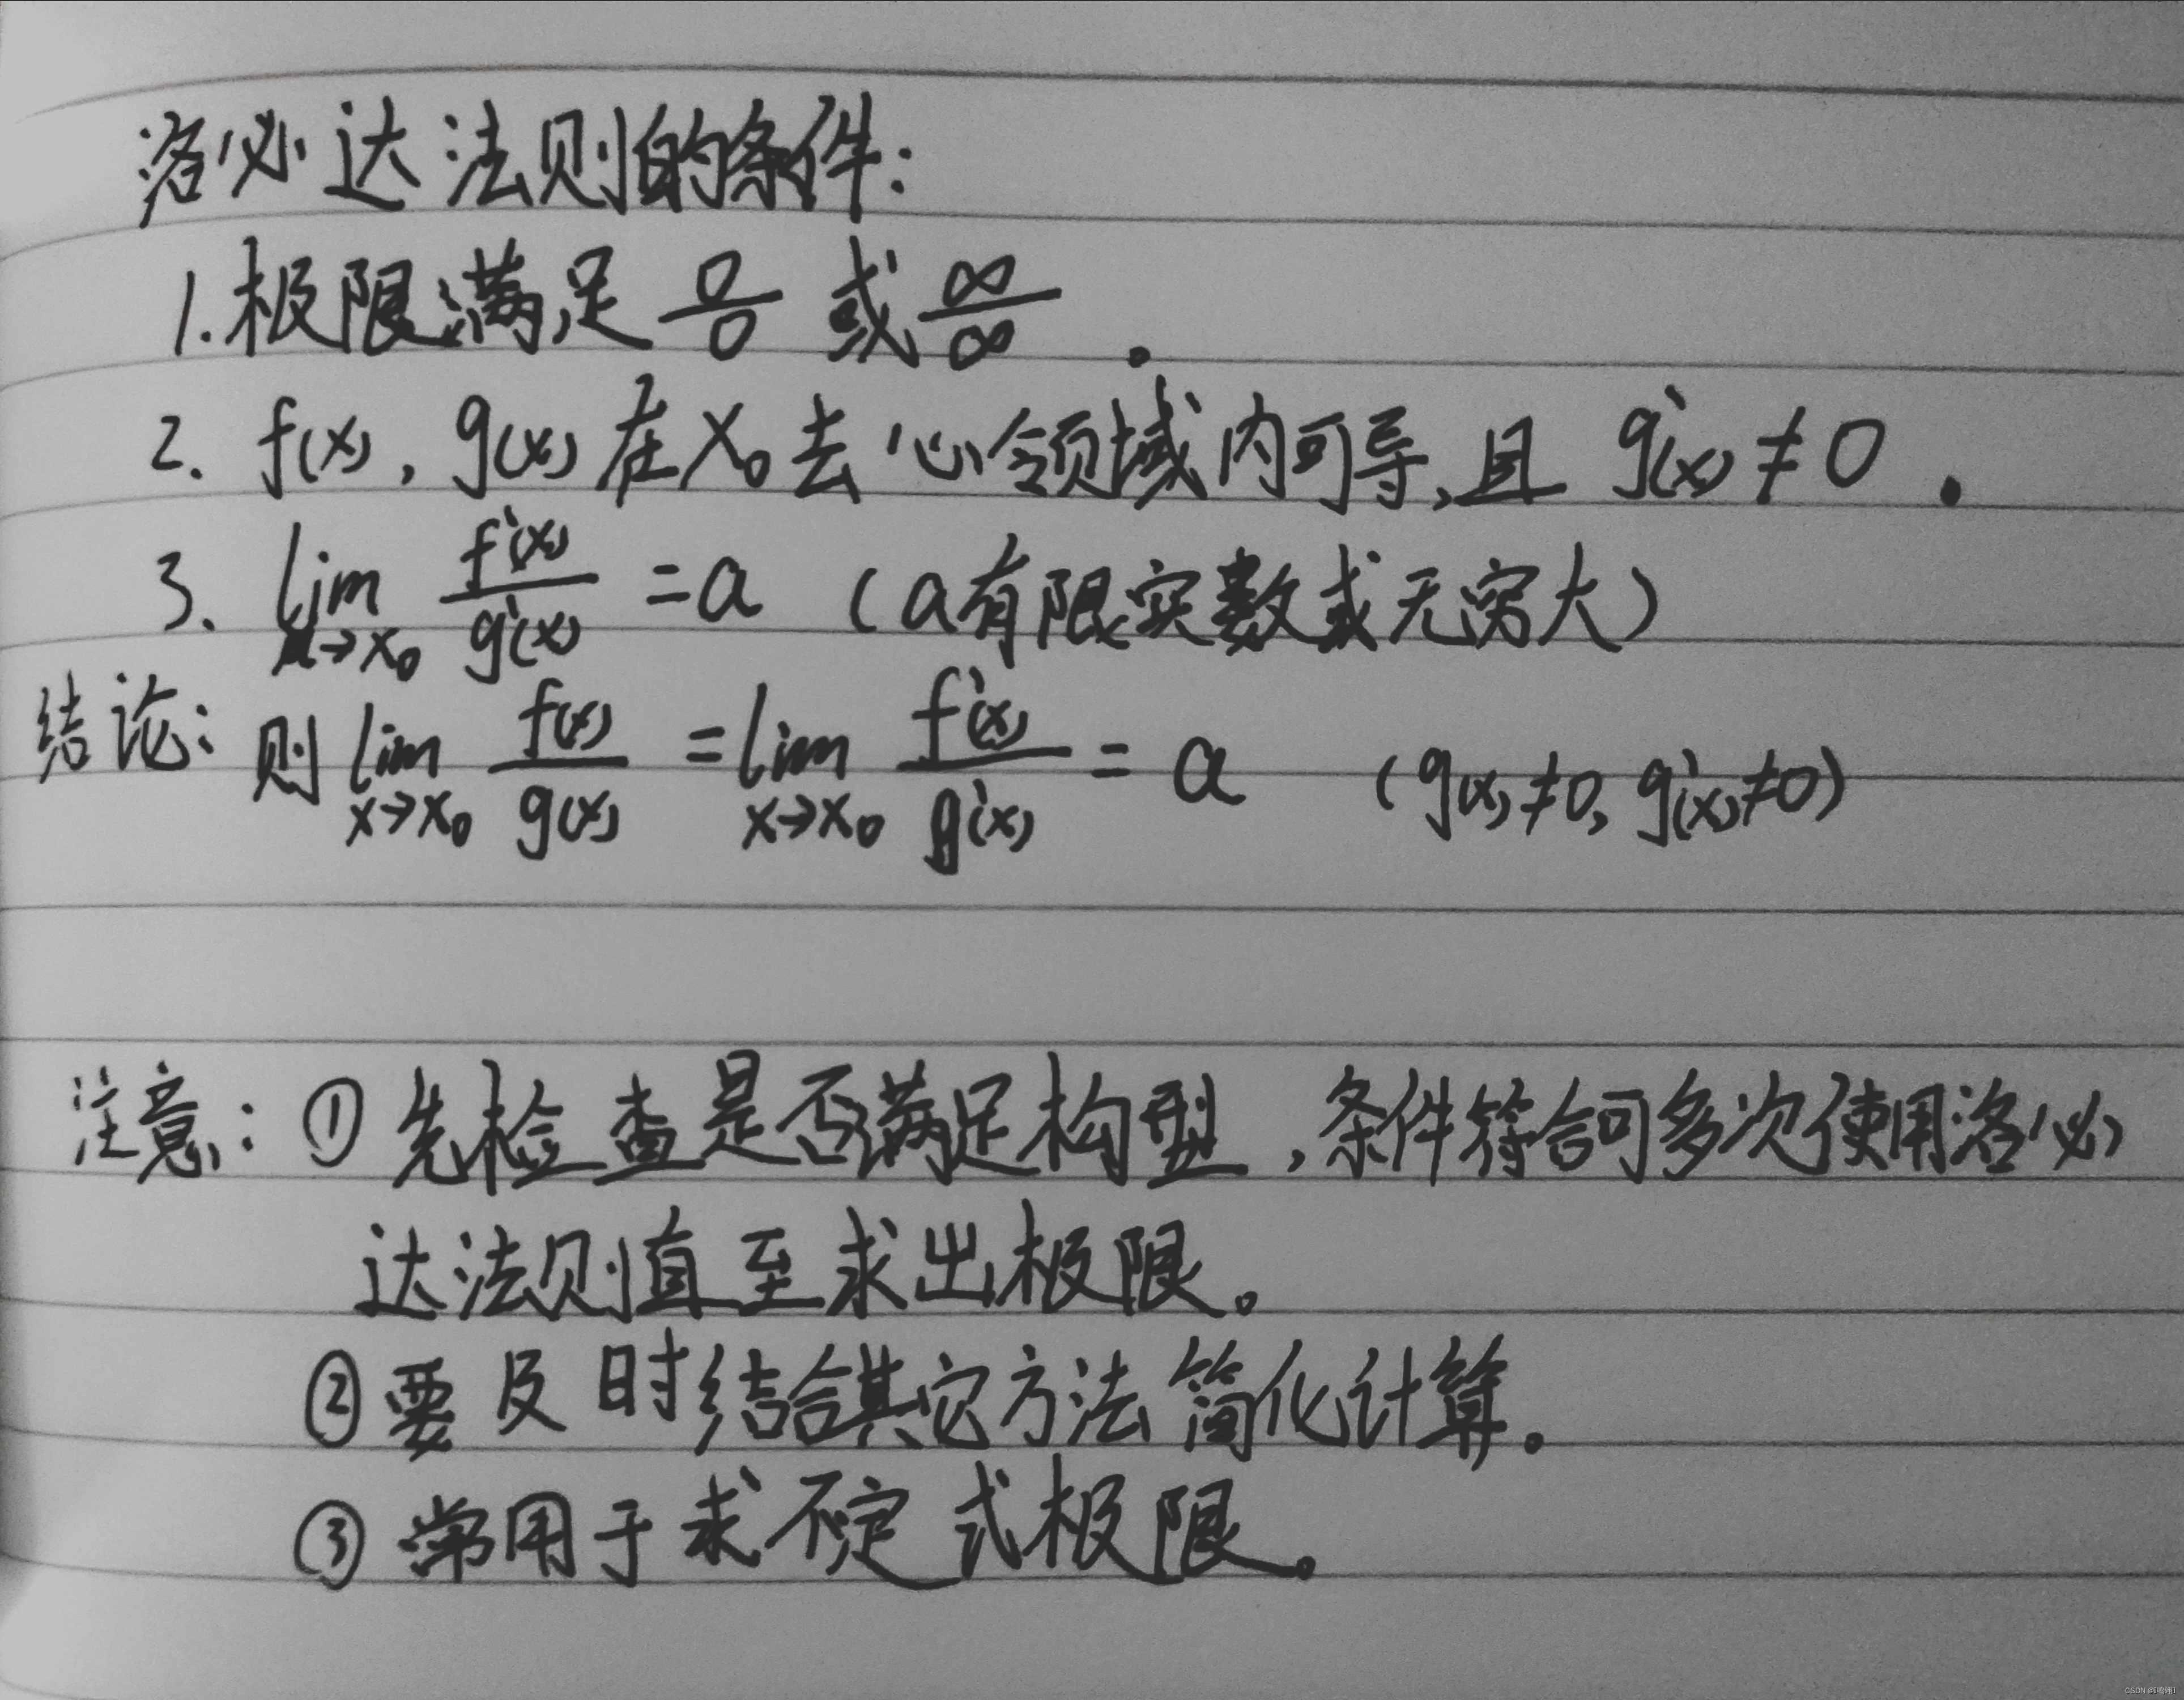 洛必达法则的条件:
1.极限满足 0/0 或 ∞/∞ .
2. f(x), g(x) 在 x₀ 去心领域内可导,且 g'(x) ≠ 0 .
3. lim x→x₀ f'(x)/g'(x) = a (a有限实数或无穷大)
结论: 则 lim x→x₀ f(x)/g(x) = lim x→x₀ f'(x)/g'(x) = a (g(x)≠0, g'(x)≠0)
注意: ① 先检查是否满足构型,条件符合可多次使用洛必
达法则直至求出极限。
② 要及时结合其它方法简化计算。
③ 常用于求不定式极限。